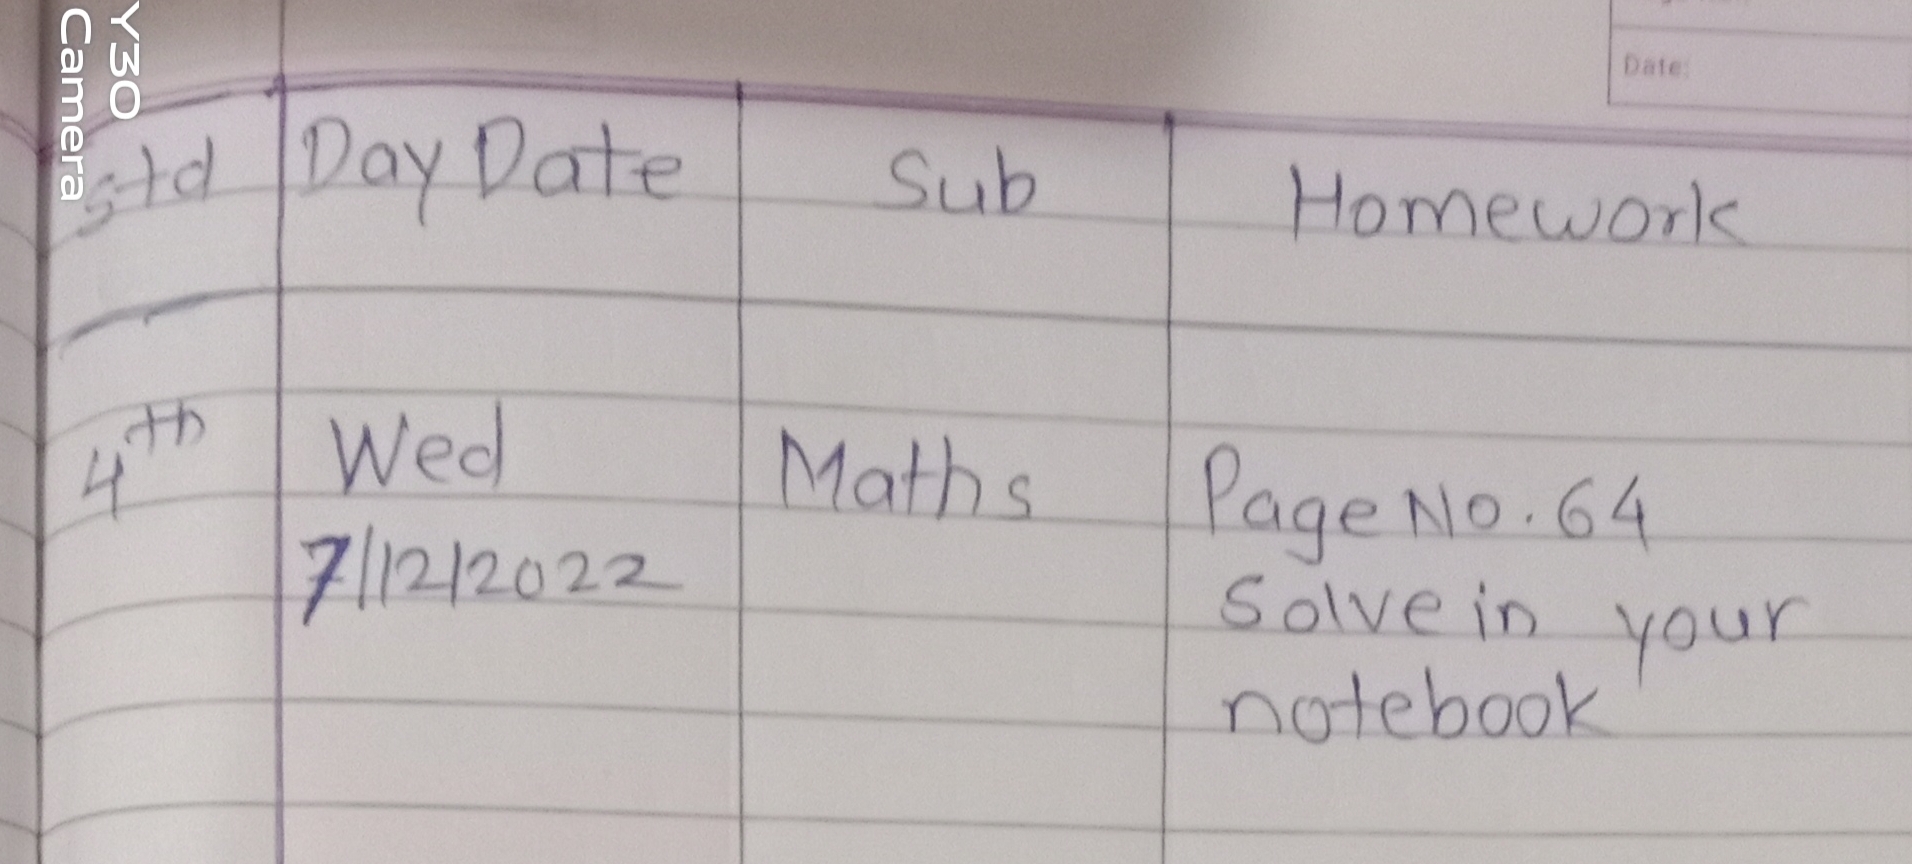 Y30
Camera
Date:
Std Day Date Sub Homework
4th Wed Maths Page No. 64
7/12/2022 Solve in your
notebook